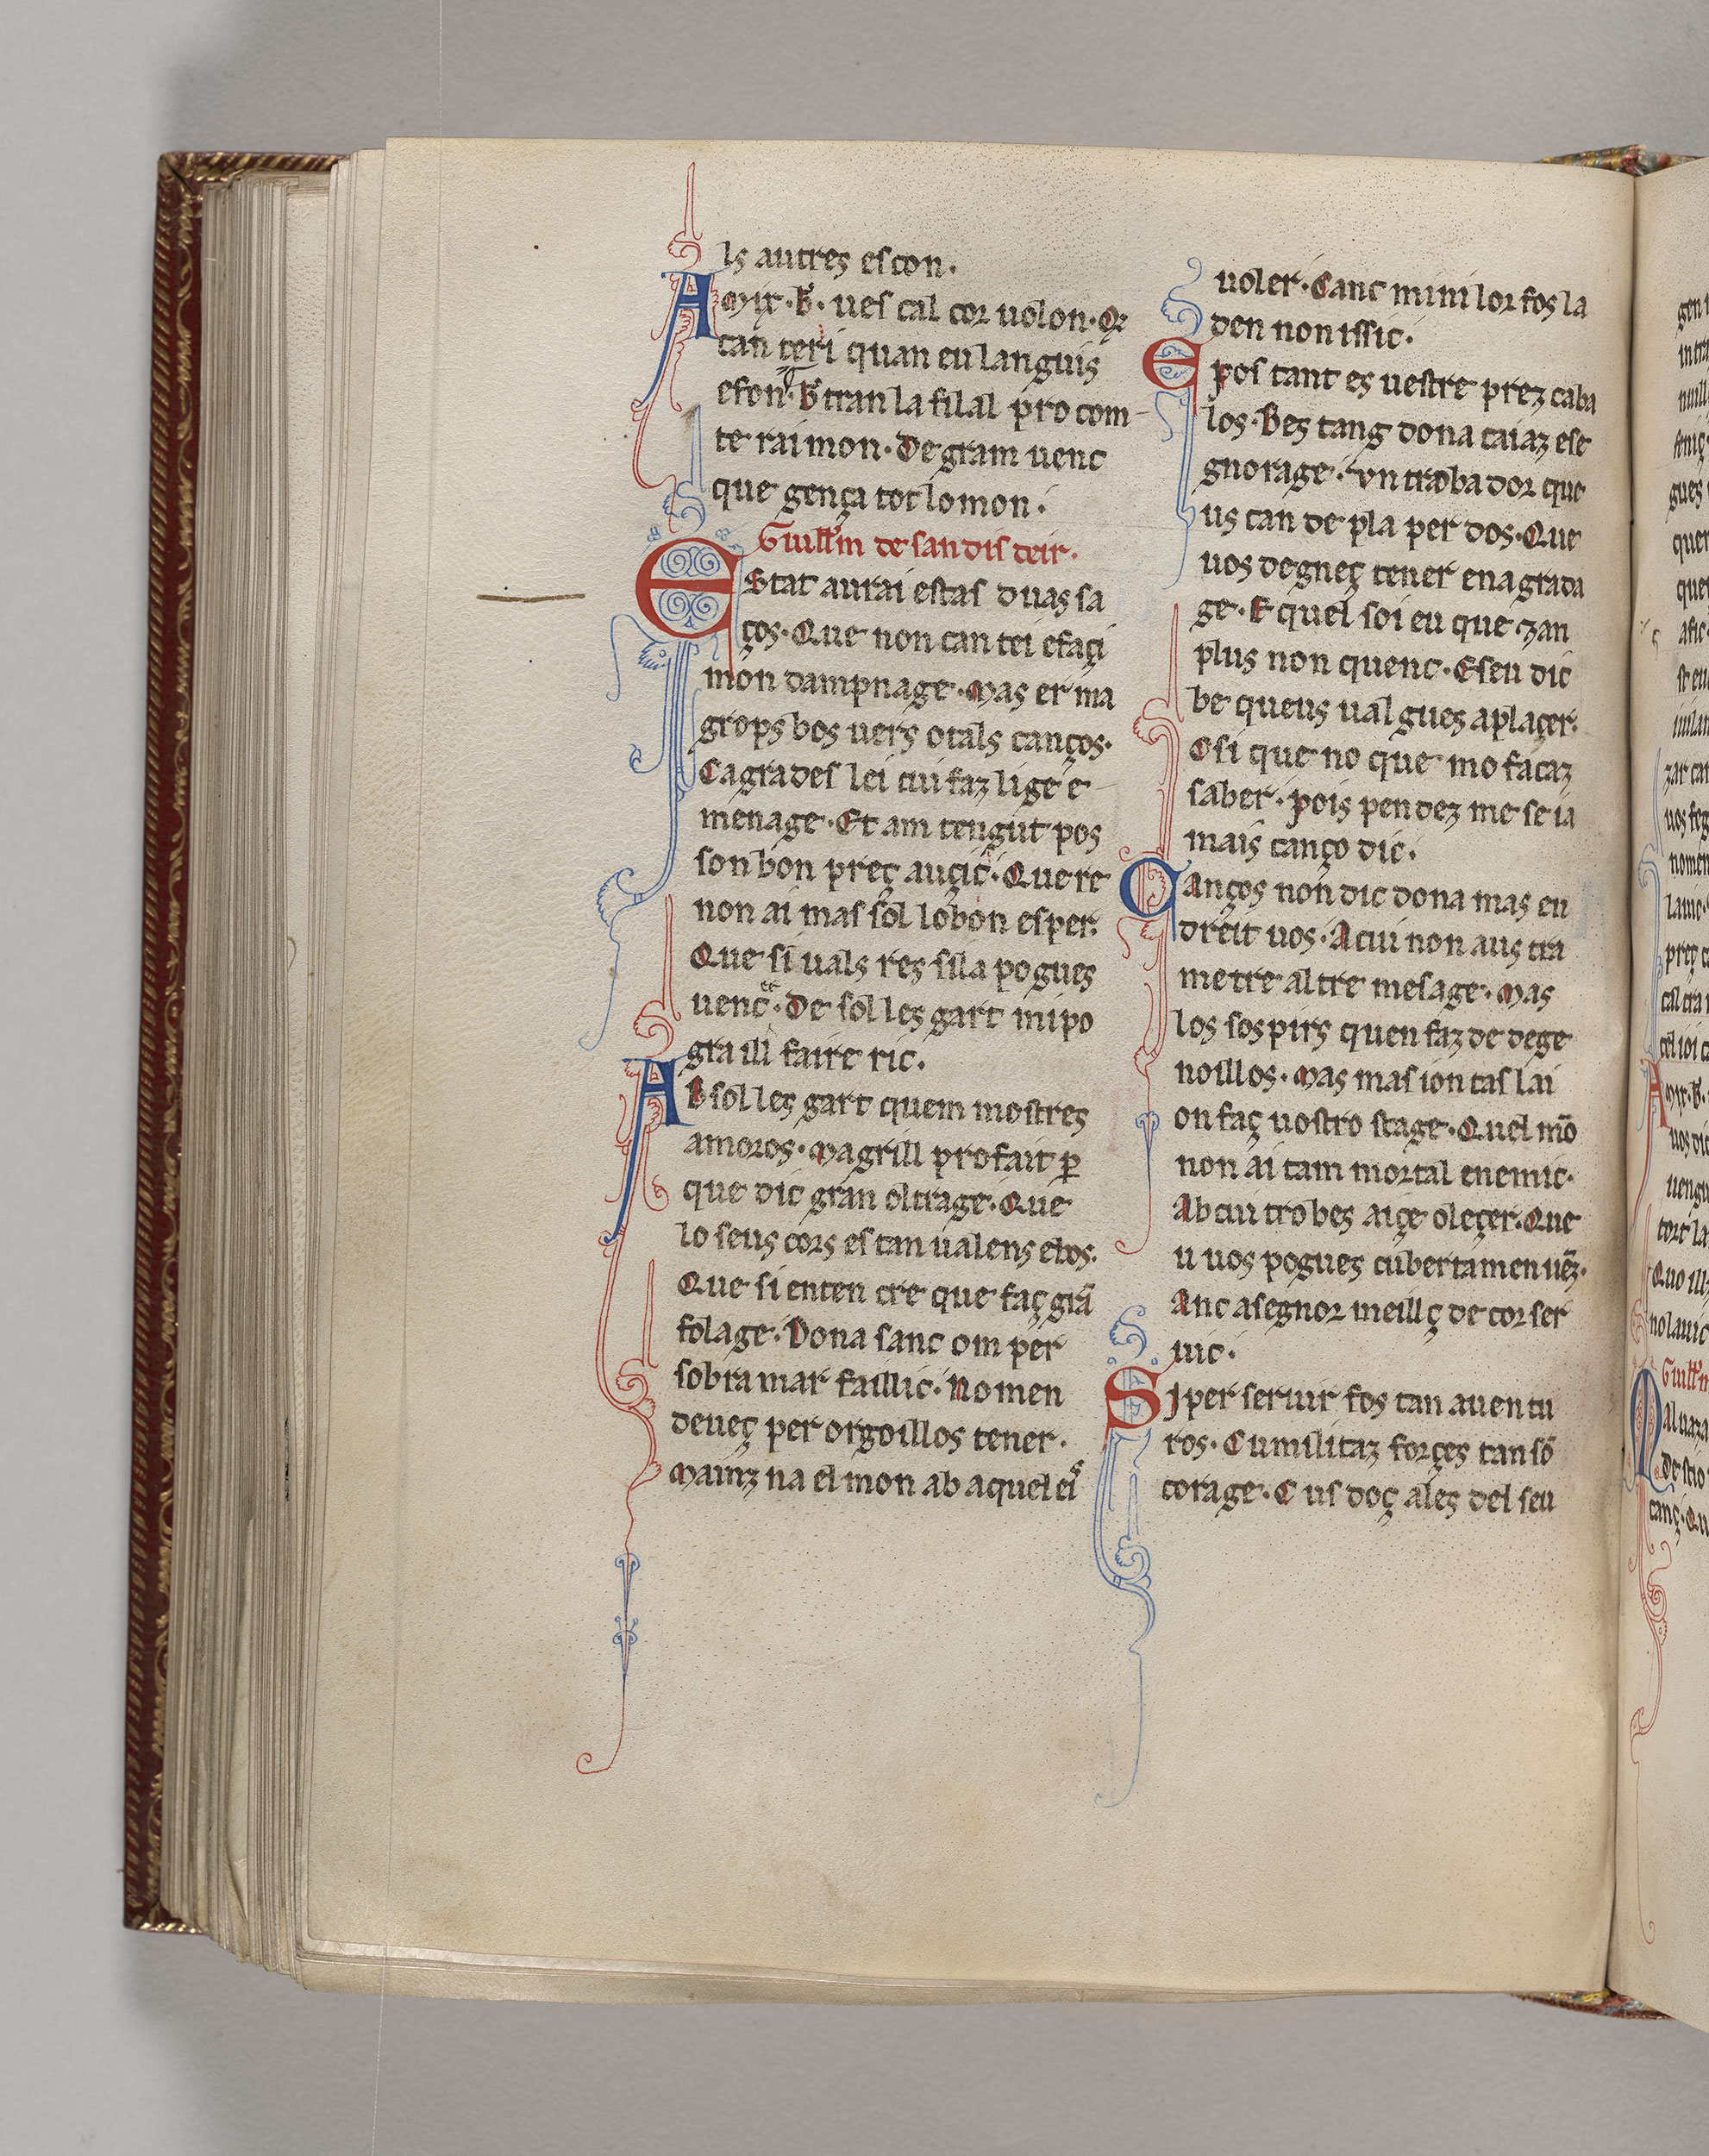 ls autres escon.
Amix .b. ues cal cor uolon. Qe
tan teri quan eu languis
efon. bertran la filal pro com
te raimon. De gram uenc
que gença tot lo mon.
Guillm de san disteir.
Estat aurai estas duas sa
ços. Que non cantei e façi
mon dampnage. Mas er ma
grops bos uers o tals canços.
Cagrades lei cui faz lige e
menage. Et am tengut pos
son bon preç auçic. Que re
non ai mas sol lo bon esper.
Que si uals res silla pogues
uencer. De sol les gart mi po
gra ill faire ric.
Ab sol les gart quem mostres
amoros. Magrill pro fait p
que dic gran oltrage. Que
lo seus cors es tan ualens e los.
Que si enten cre que faç grã
folage. Dona sanc om per
sobramar faillic. No men
deueç per orgoillos tener.
Mainz na el mon ab aquel ei
uoler. Canc mi ni lor fos la
den non issic.
E pos tant es uestre prez caba
los. Bes tang dona caiaz ese
gnorage. Vn trobador que
us can de pla per dos. Que
uos degneç tener en agrada
ge. E quel soi eu que zan
plus non quenc. E seu dic
be queus ualgues a plaçer.
O si que no que mo facaz
saber. pois pendez me se ia
mais canço dic.
Canços non dic dona mas en
dreit uos. A cui non aus tra
metre altre mesage. Mas
los sospirs quen faz de dege
noillos. Mas mas ion tas lai
on faç uostro stage. Quel mõ
non ai tam mortal enemic.
Ab cui trobes aiçe o leçer. Que
u uos pogues cubertamen uẽz.
Anc a segnor meillç de cor ser
uic.
Si per seruir fos tan auentu
ros. Cumilitaz forçes tan sõ
corage. C us doç ales del seu